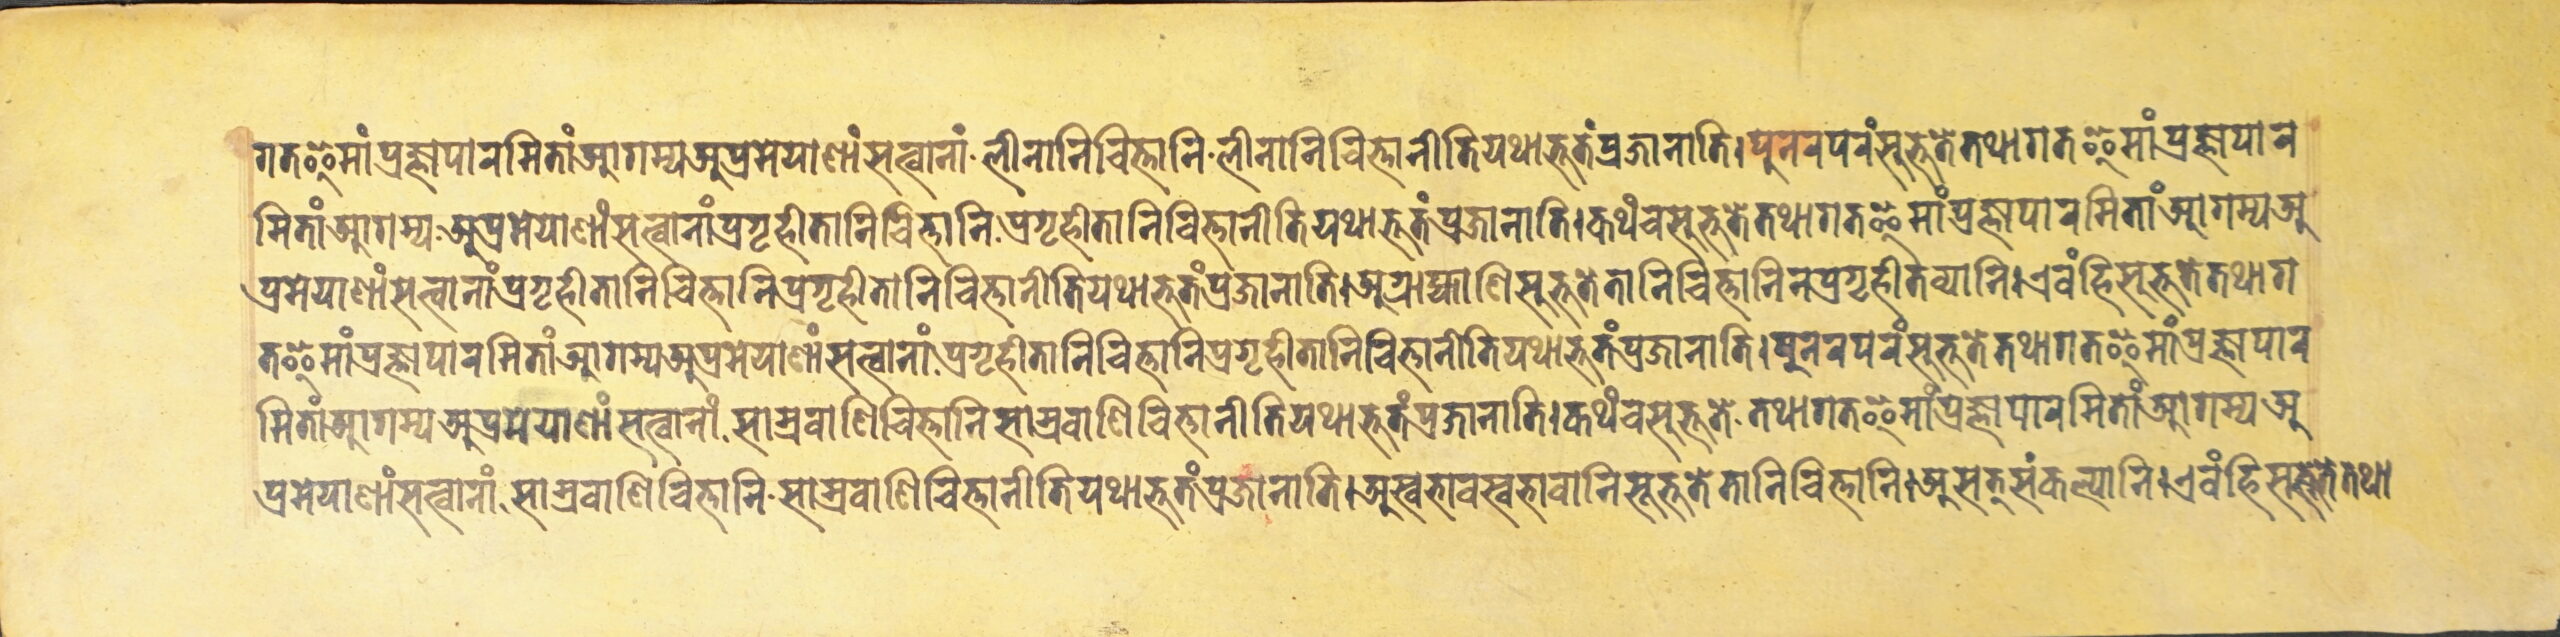 गतइमां प्रज्ञापारमितां आगम्य अप्रमेयाणां सत्त्वानां· लीनानि चित्तानि· लीनानि चित्तानीति यथाभूतं प्रजानाति। पुनरपरं सुभूते तथागत इमां प्रज्ञापार
मितां आगम्य· अप्रमेयाणां सत्त्वानां प्रगृहीतानि चित्तानि· प्रगृहीतानि चित्तानीति यथाभूतं प्रजानाति। कथं च सुभूते तथागत इमां प्रज्ञापारमितां आगम्य अ
प्रमेयाणां सत्त्वानां प्रगृहीतानि चित्तानि प्रगृहीतानि चित्तानीति यथाभूतं प्रजानाति। अग्राह्याणि सुभूते तानि चित्तानि न प्रगृहीतव्यानि। एवं हि सुभूते तथाग
त इमां प्रज्ञापारमितां आगम्य अप्रमेयाणां सत्त्वानां· प्रगृहीतानि चित्तानि प्रगृहीतानि चित्तानीति यथाभूतं प्रजानाति। पुनरपरं सुभूते तथागत इमां प्रज्ञापार
मितां आगम्य अप्रमेयाणां सत्त्वानां· सास्रवाणि चित्तानि सास्रवाणि चित्तानीति यथाभूतं प्रजानाति। कथं च सुभूते· तथागत इमां प्रज्ञापारमितां आगम्य अ
प्रमेयाणां सत्त्वानां· सास्रवाणि चित्तानि· सास्रवाणि चित्तानीति यथाभूतं प्रजानाति। अस्वभावस्वभावानि सुभूते तानि चित्तानि। असत्संकल्पानि। एवं हि सुभूते तथा